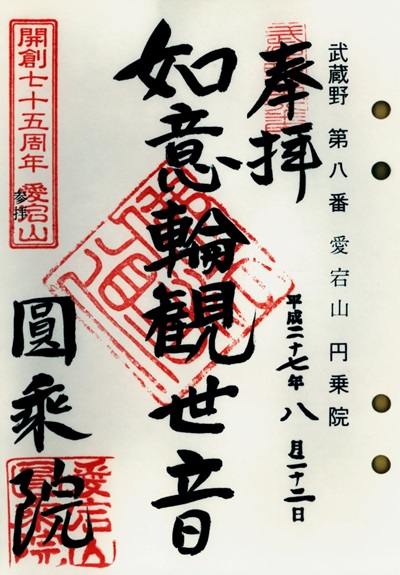 武蔵野 第八番 愛宕山 円乗院
奉拝
平成二十七年 八月二十二日
如意輪観世音
開創七十五周年 愛宕山
参拝
圓乗院
愛宕山